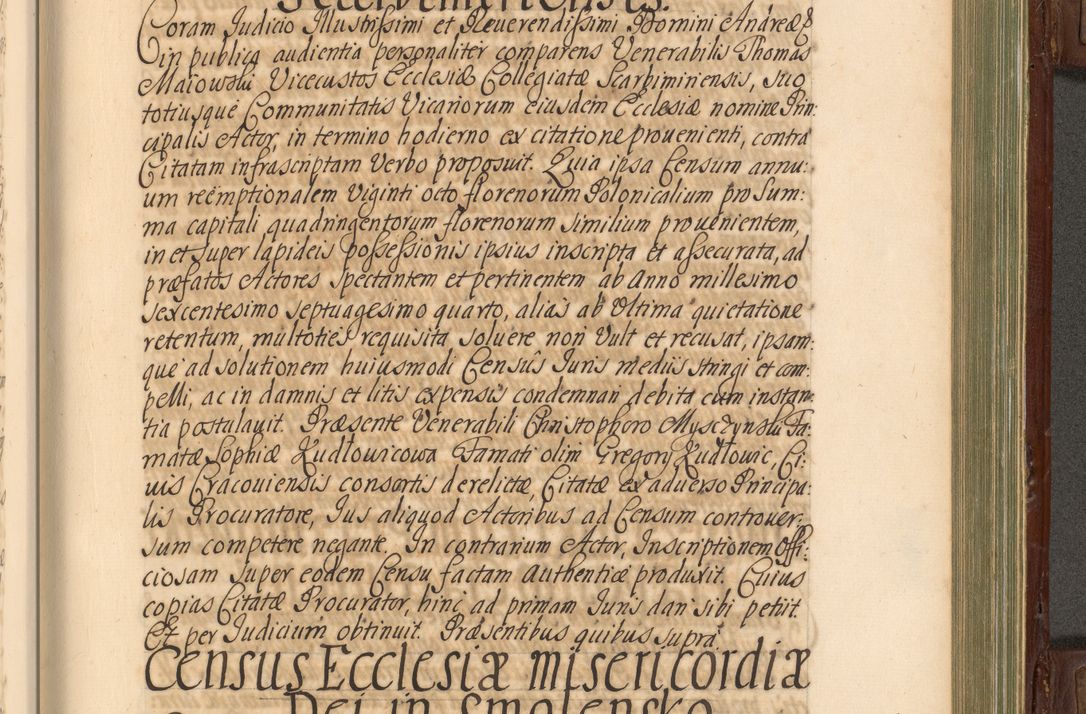 Coram Judicio Illustrissimi et Reuerendissimi Domini Andreæ &
in publica audientia personaliter comparens Venerabilis Thomas
Maiowski Vicecustos Ecclesiæ Collegiatæ Scarbiminensis, suo
totiusque Communitatis Vicariorum eiusdem Ecclesiæ nomine Prin:
cipalis Actor, in termino hodierno ex citatione prouenienti, contra
Citatam infrascriptam Verbo proposuit. Quia ipsa Censum annu:
um reëmptionalem Viginti octo florenorum Polonicalium pro Sum:
ma capitali quadringentorum florenorum similium prouenientem,
in et super lapideis possessionis ipsius inscripta et assecurata, ad
præfatos Actores spectantem et pertinentem ab Anno millesimo
sexcentesimo septuagesimo quarto, alias ab Vltima quietatione
retentum, multoties requisita soluere non Vult et recusat, ipsam:
que ad solutionem huiusmodi Censûs Juris medijs stringi et com:
pelli, ac in damnis et litis expensis condemnari debita cum instan:
tia postulauit. Præsente Venerabili Christophoro Myszczynski Fa:
matæ Sophiæ Kudlowicowa Famati olim Gregorij Kudlowic, Ci:
uis Cracouiensis consortis derelictæ, Citatæ ex aduerso Principa:
lis Procuratore, Jus aliquod Actoribus ad Censum controuer:
sum competere negante. In contrarium Actor, Inscriptionem Offi:
ciosam super eodem Censu factam Authenticæ produxit. Cuius
copias Citatæ Procurator, hinc ad primam Juris dari sibi petiit.
Et per Judicium obtinuit. Præsentibus quibus supra.
Census Ecclesiæ misericordiæ
Dei in Smolensko